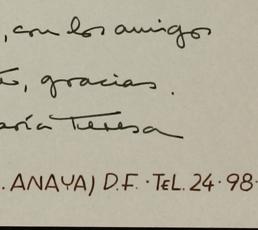 , con los amigos
, gracias.
aría Teresa
. ANAYA) D.F. · TEL. 24 · 98 ·